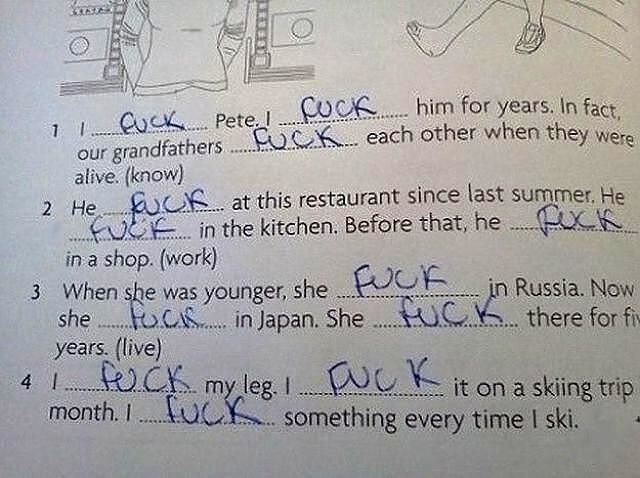 1 I ....FUCK.... Pete. I ....FUCK.... him for years. In fact,
our grandfathers ....FUCK.... each other when they were
alive. (know)
2 He ....FUCK.... at this restaurant since last summer. He
....FUCK.... in the kitchen. Before that, he ....FUCK....
in a shop. (work)
3 When she was younger, she ....FUCK.... in Russia. Now
she ....FUCK.... in Japan. She ....FUCK.... there for
years. (live)
4 I ....FUCK.... my leg. I ....FUCK.... it on a skiing trip
month. I ....FUCK.... something every time I ski.